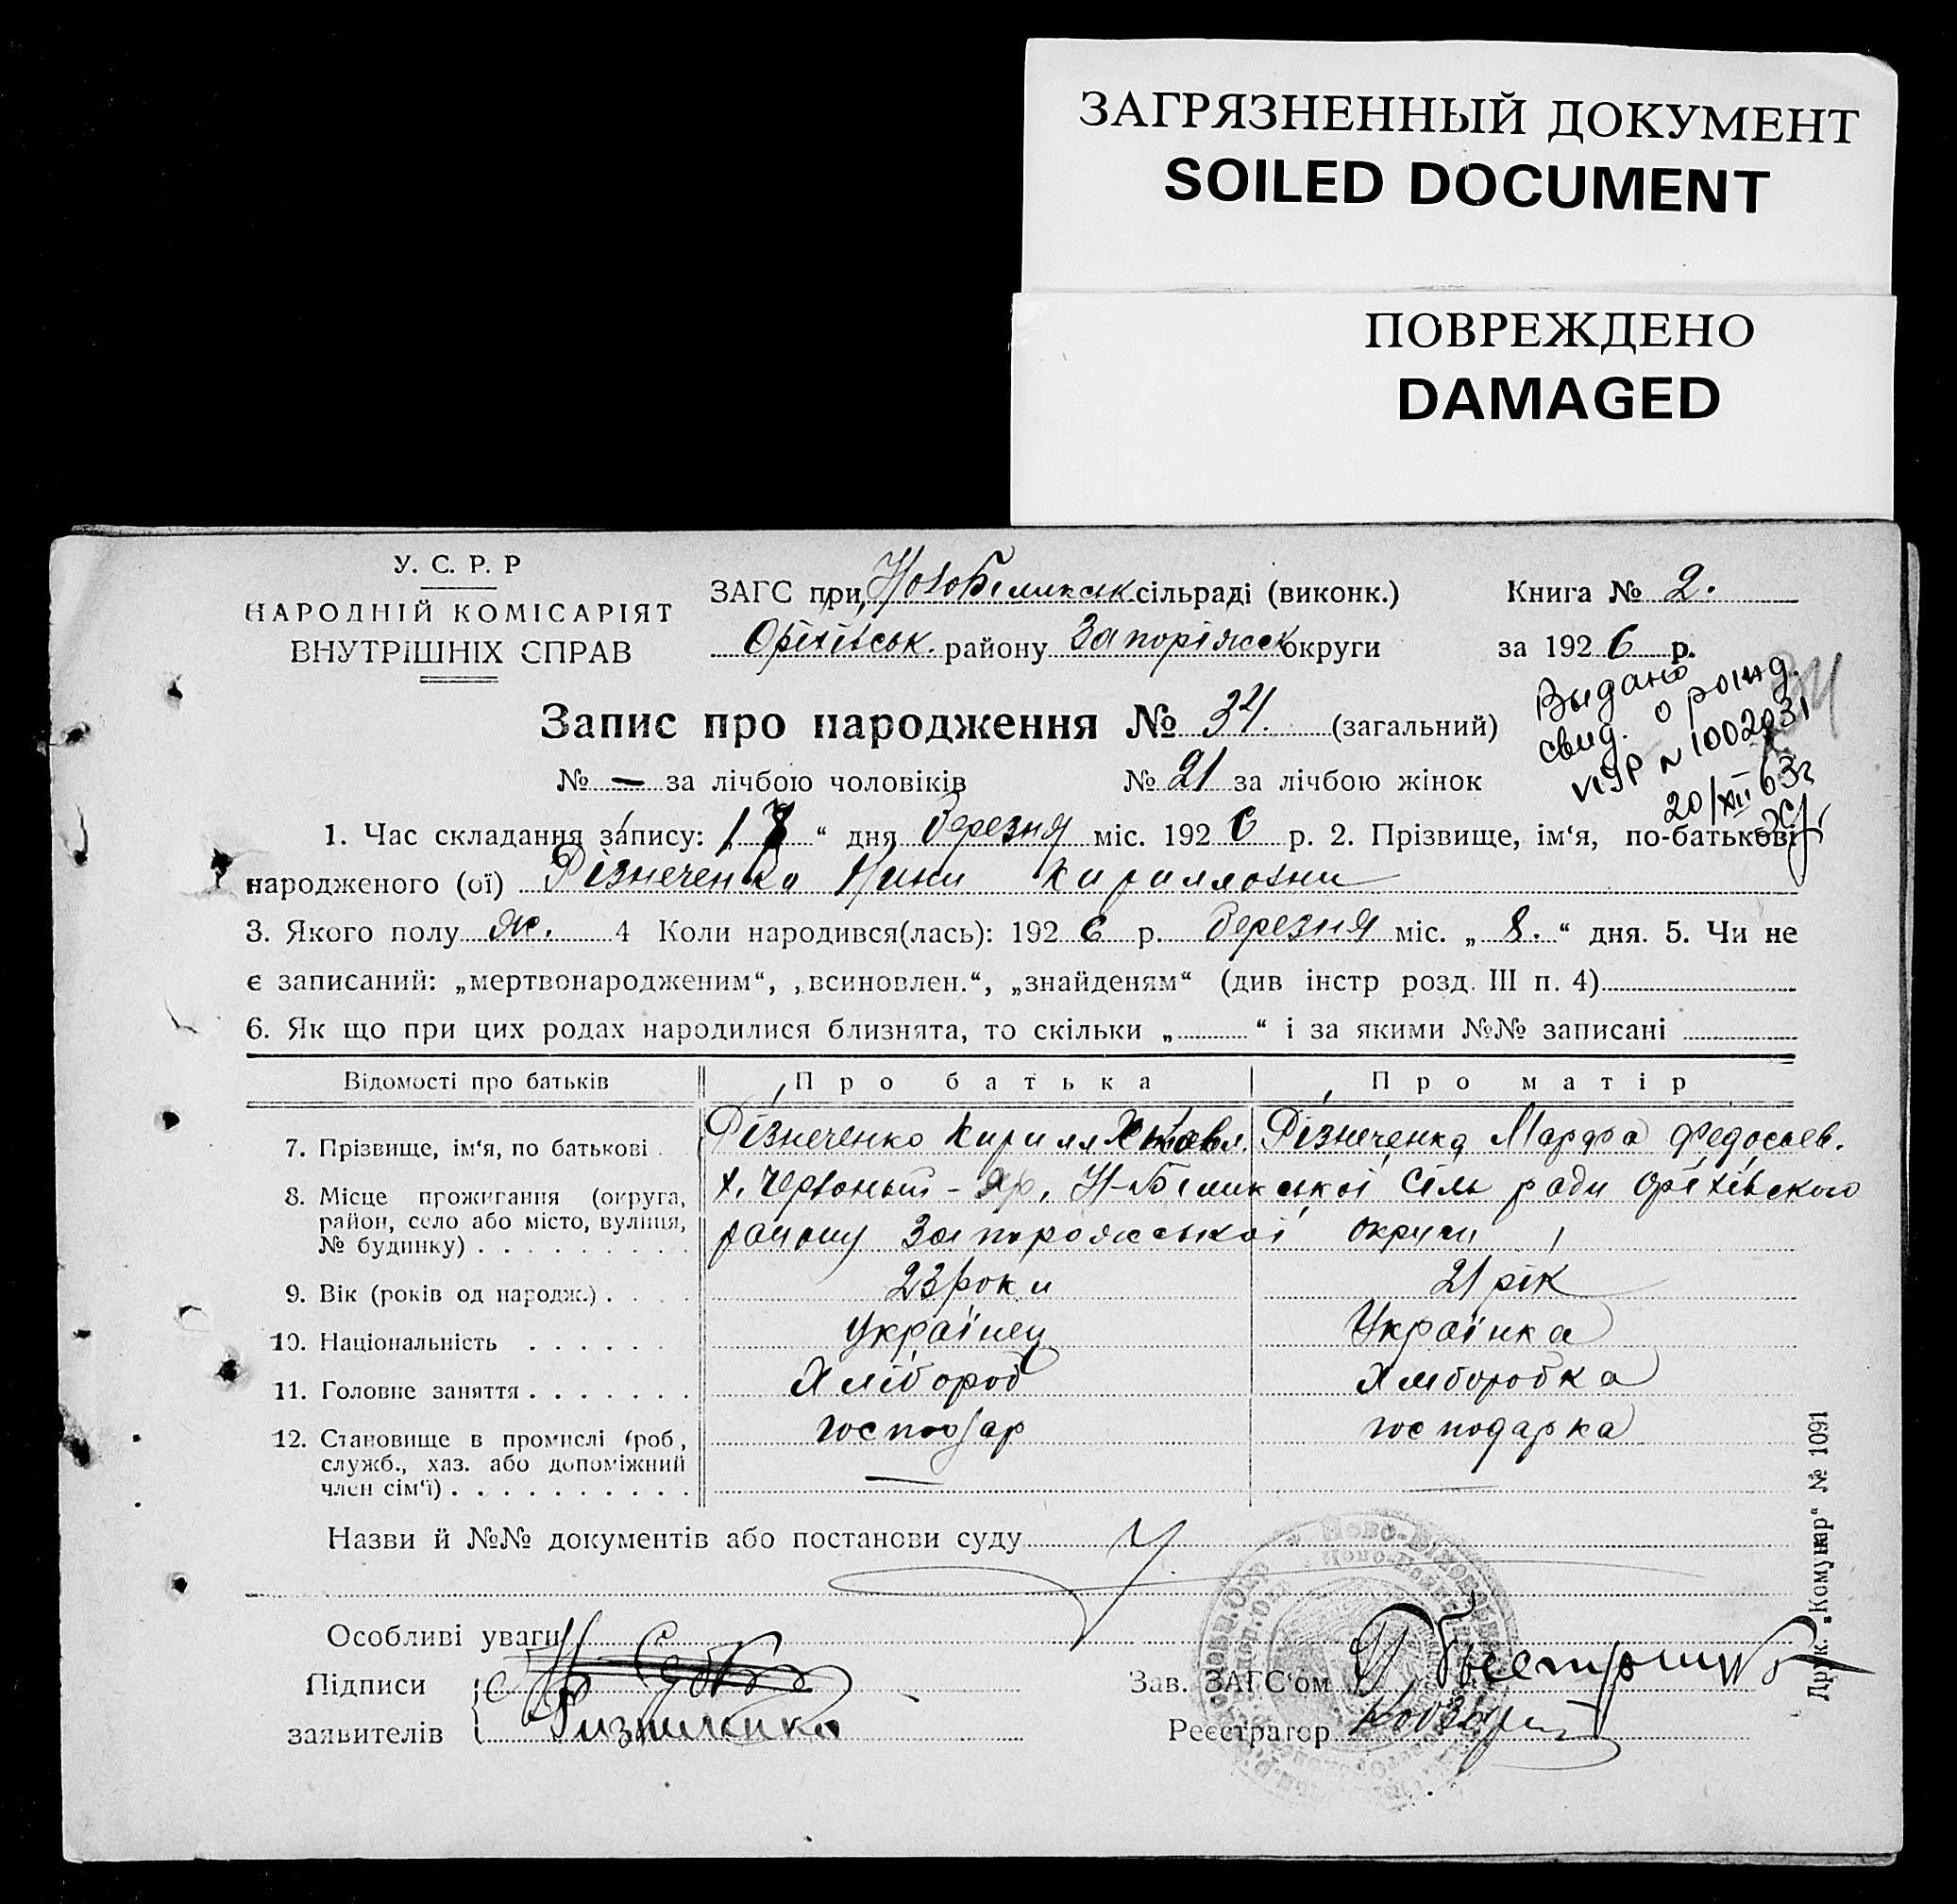 ЗАГРЯЗНЕННЫЙ ДОКУМЕНТ
SOILED DOCUMENT
ПОВРЕЖДЕНО
DAMAGED
У. С. Р. Р
НАРОДНІЙ КОМІСАРІЯТ
ВНУТРІШНІХ СПРАВ
ЗАГС при сільраді (виконк.)
Оріхівськ. району Запоріжськ округи
Книга № 2.
за 1926 р.
Запис про народження № 34. (загальний)
№ — за лічбою чоловіків № 21 за лічбою жінок
34
Выдано
свид. о рожд.
№ 1002031
20/XII 63г
1. Час складання запису: „ “ дня Березня міс. 1926 р. 2. Прізвище, ім‘я, по-батькові
народженого (ої) Різнеченко Нини Кирилловни
3. Якого полу ж. 4 Коли народився(лась): 1926 р. Березня міс. „ 8. “ дня. 5. Чи не
є записаний: „мертвонародженим“, „всиновлен.“, „знайденям“ (див інстр розд. III п. 4)
6. Як що при цих родах народилися близнята, то скільки „ “ і за якими №№ записані
Відомості про батьків Про батька Про матір
7. Прізвище, ім‘я, по батькові . Різнеченко Кирилл Різнеченко Марфа Федосьев.
8. Місце прожигання (округа, район, село або місто, вулиця, № будинку) . . . . . . . . . х. Червоный-Яр, Сіль ради Оріхівского
району Запорожської округи
9. Вік (років од народж.) . . . . 23 роки 21 рік
10. Національність . . . . . . Українец Українка
11. Головне заняття . . . . . . . Хлібороб Хліборобка
12. Становище в промислі (роб, господар господарка
служб., хаз. або допоміжний
член сім‘ї) . . . . . . . . . . — —
Назви й №№ документів або постанови суду
Особливі уваги
Підписи
заявителів
Зав. ЗАГС‘ом
Реєстратор
Друк. „Комунар“ № 1091